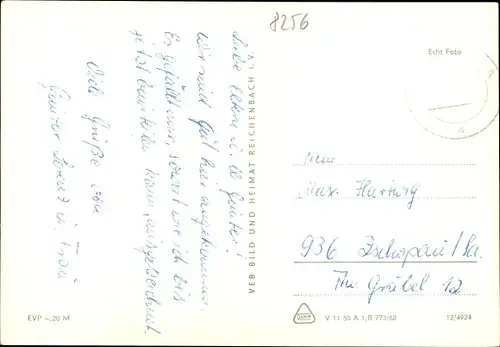 8256
Echt Foto
Liebe Eltern u. Günter!
Wir sind gut hier angekommen.
Es gefällt mir, soweit wie ich bis
jetzt beurteilen kann, ausgezeichnet.
Viele Grüße von
Günter u. Frau
VEB BILD UND HEIMAT REICHENBACH I. V.
Max Hartwig
936 Zschopau/Sa.
Am Gräbel 12
EVP –,20 M
V 11 50 A 1/B 773/60
12/4924